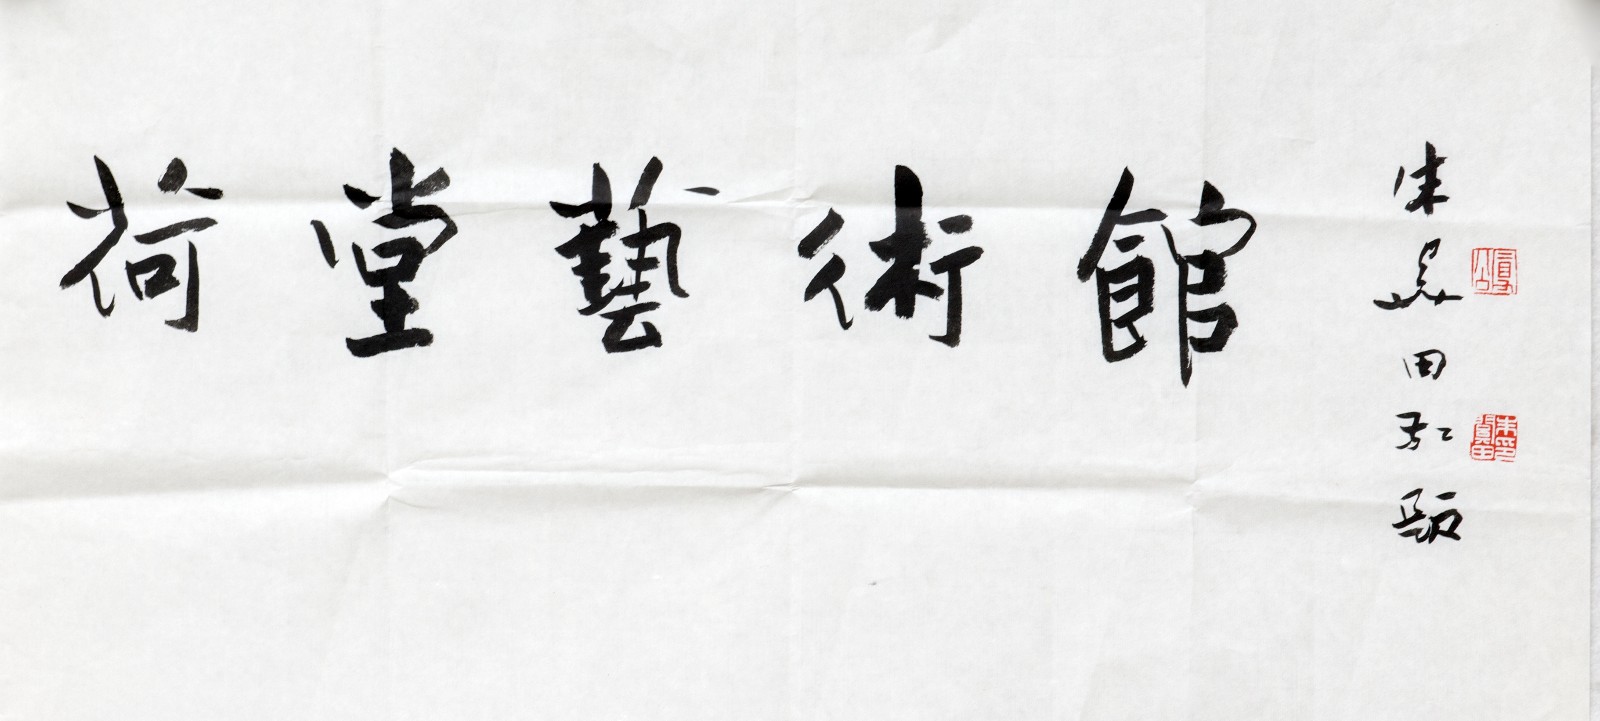 荷堂藝術館
朱冀田敬題